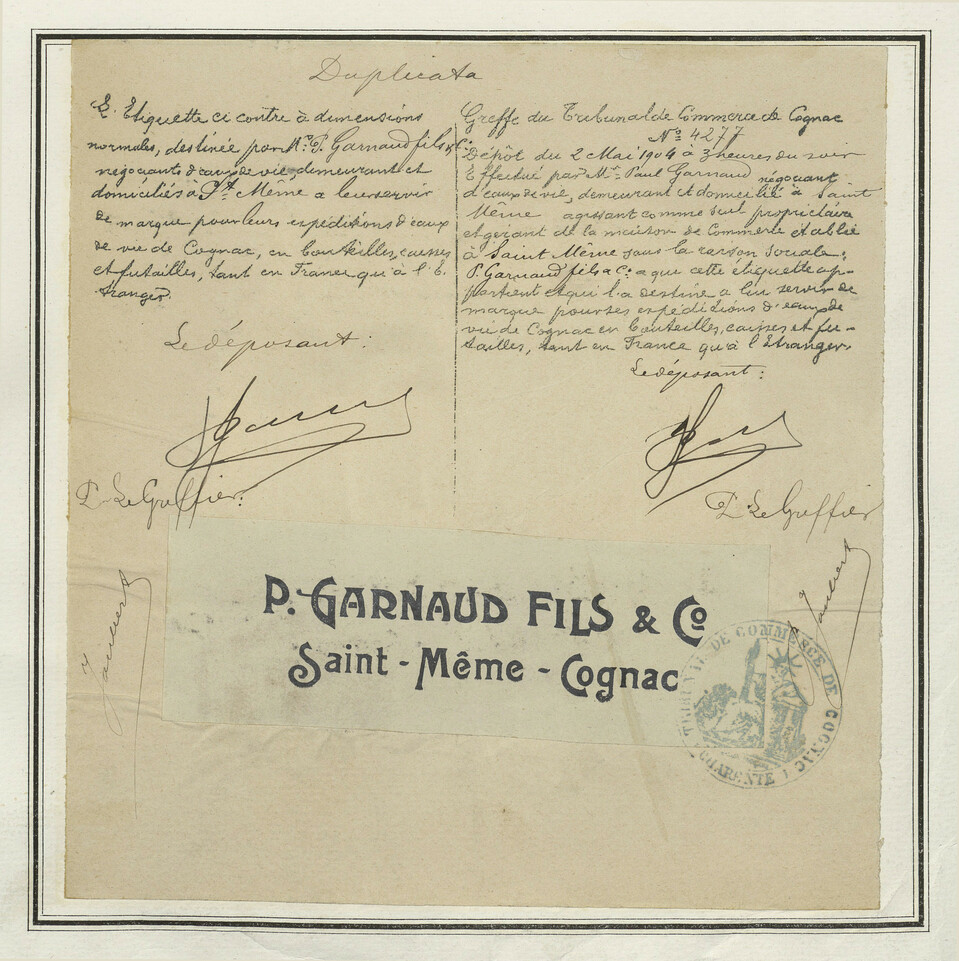 Duplicata
L. Etiquette ci contre à dimensions
normales, destinée par Mr. P. Garnaud fils & Co.
négociants d'eaux de vie, demeurant et
domiciliés à St. Même a leur servir
de marque pour leurs expéditions d'eaux
de vie de Cognac, en bouteilles, caisses
et futailles, tant en France qu'à l'E
tranger.
Le déposant :
P. Le Greffier :
Greffe du Tribunal de Commerce de Cognac
No 4277
Dépôt du 2 Mai 1904 à 3 heures du soir
Effectué par Mr. Paul Garnaud négociant
d'eaux de vie, demeurant et domicilié à Saint
Même agissant comme seul propriétaire
et gérant de la maison de Commerce établie
à Saint Même sous la raison sociale :
P. Garnaud fils & Co. a que cette étiquette ap-
partient et qu'il l'a destine a lui servir de
marque pour ses expéditions d'eaux de
vie de Cognac en bouteilles, caisses et fu-
tailles, tant en France qu'à l'Etranger.
Le déposant :
P. Le Greffier
P. GARNAUD FILS & Co
Saint - Même - Cognac
TRIBUNAL DE COMMERCE DE COGNAC
CHARENTE